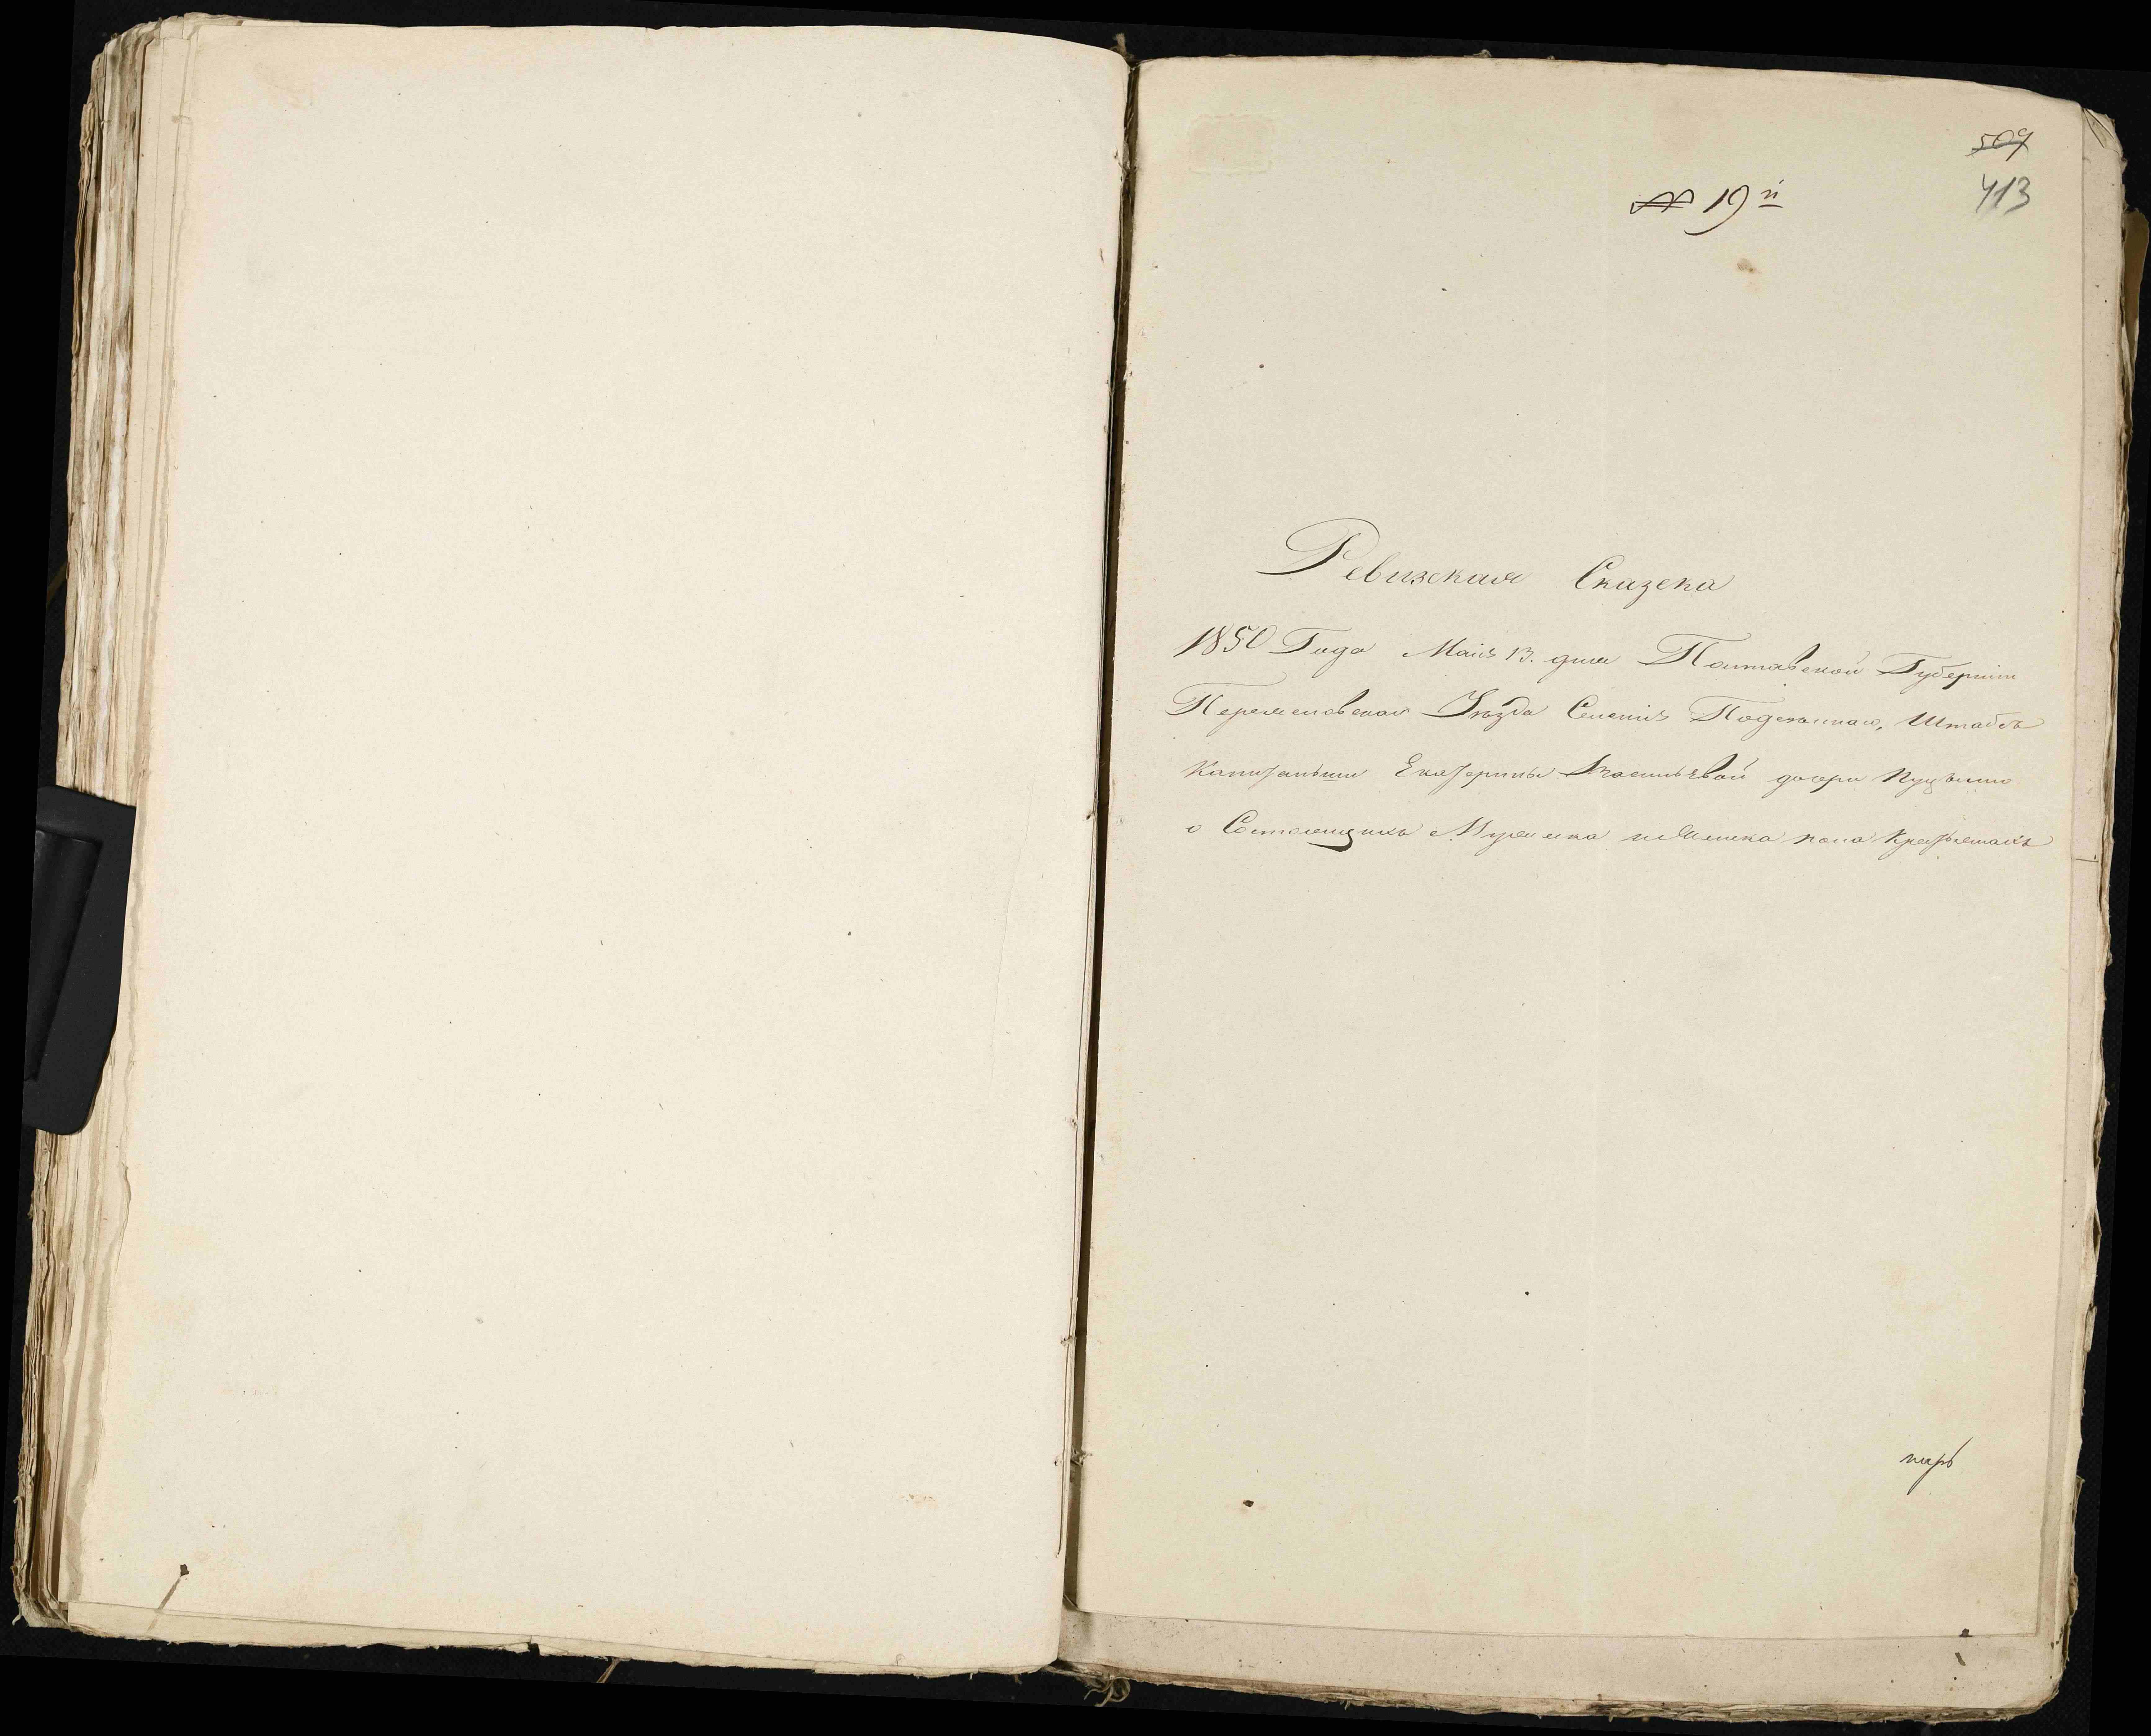 509
413
№ 19й
Ревизская Сказска
1850 Года Маія 13. дня Полтавской Губерніи
Переяславскаго Уѣзда Селенія Подсѣннаго, Штабсъ
Капитанши Екатерины Васильевой дочери
о Состоящихъ Мужеска и Женска пола Крестьянахъ